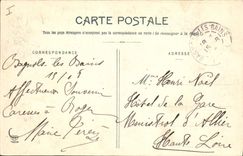 CARTE POSTALE
Tous les pays étrangers n'acceptent pas la correspondance au recto (Se renseigner à la Poste)
CORRESPONDANCE
ADRESSE
Bagnols les Bains
Affectueux Souvenir
Caresses à Roger
Marie
Mr Henri Noël
Hôtel de la Gare
Monistrol d'Allier
Haute Loire